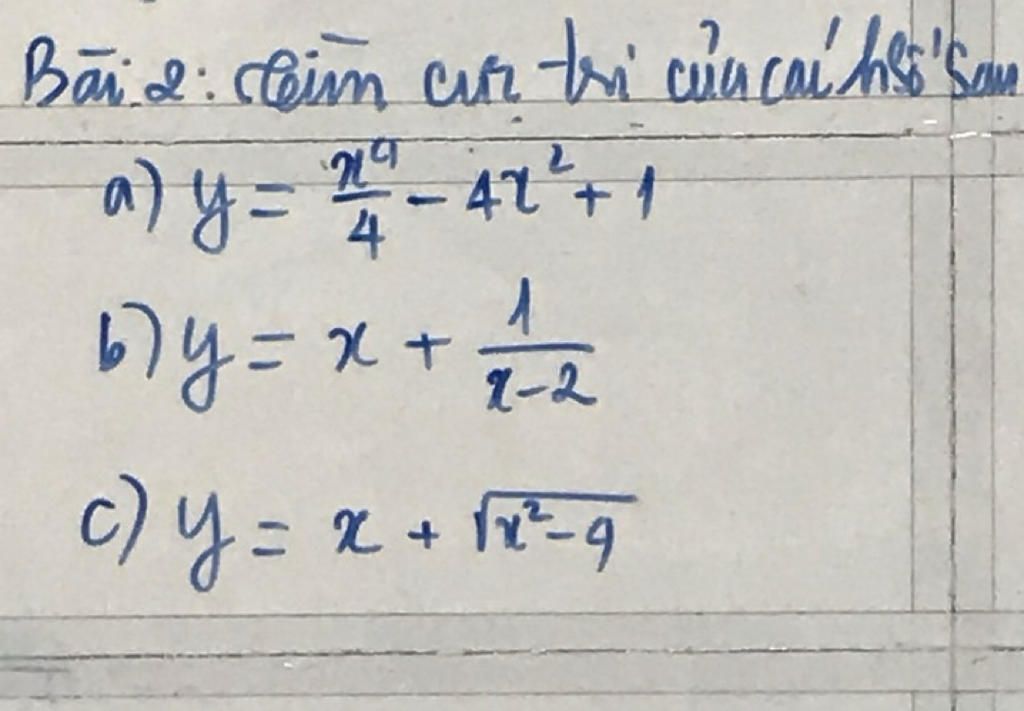 Bài 2: Tìm cực trị của các hsố sau
a) y = x⁴/4 - 4x² + 1
b) y = x + 1/(x-2)
c) y = x + √(x²-9)